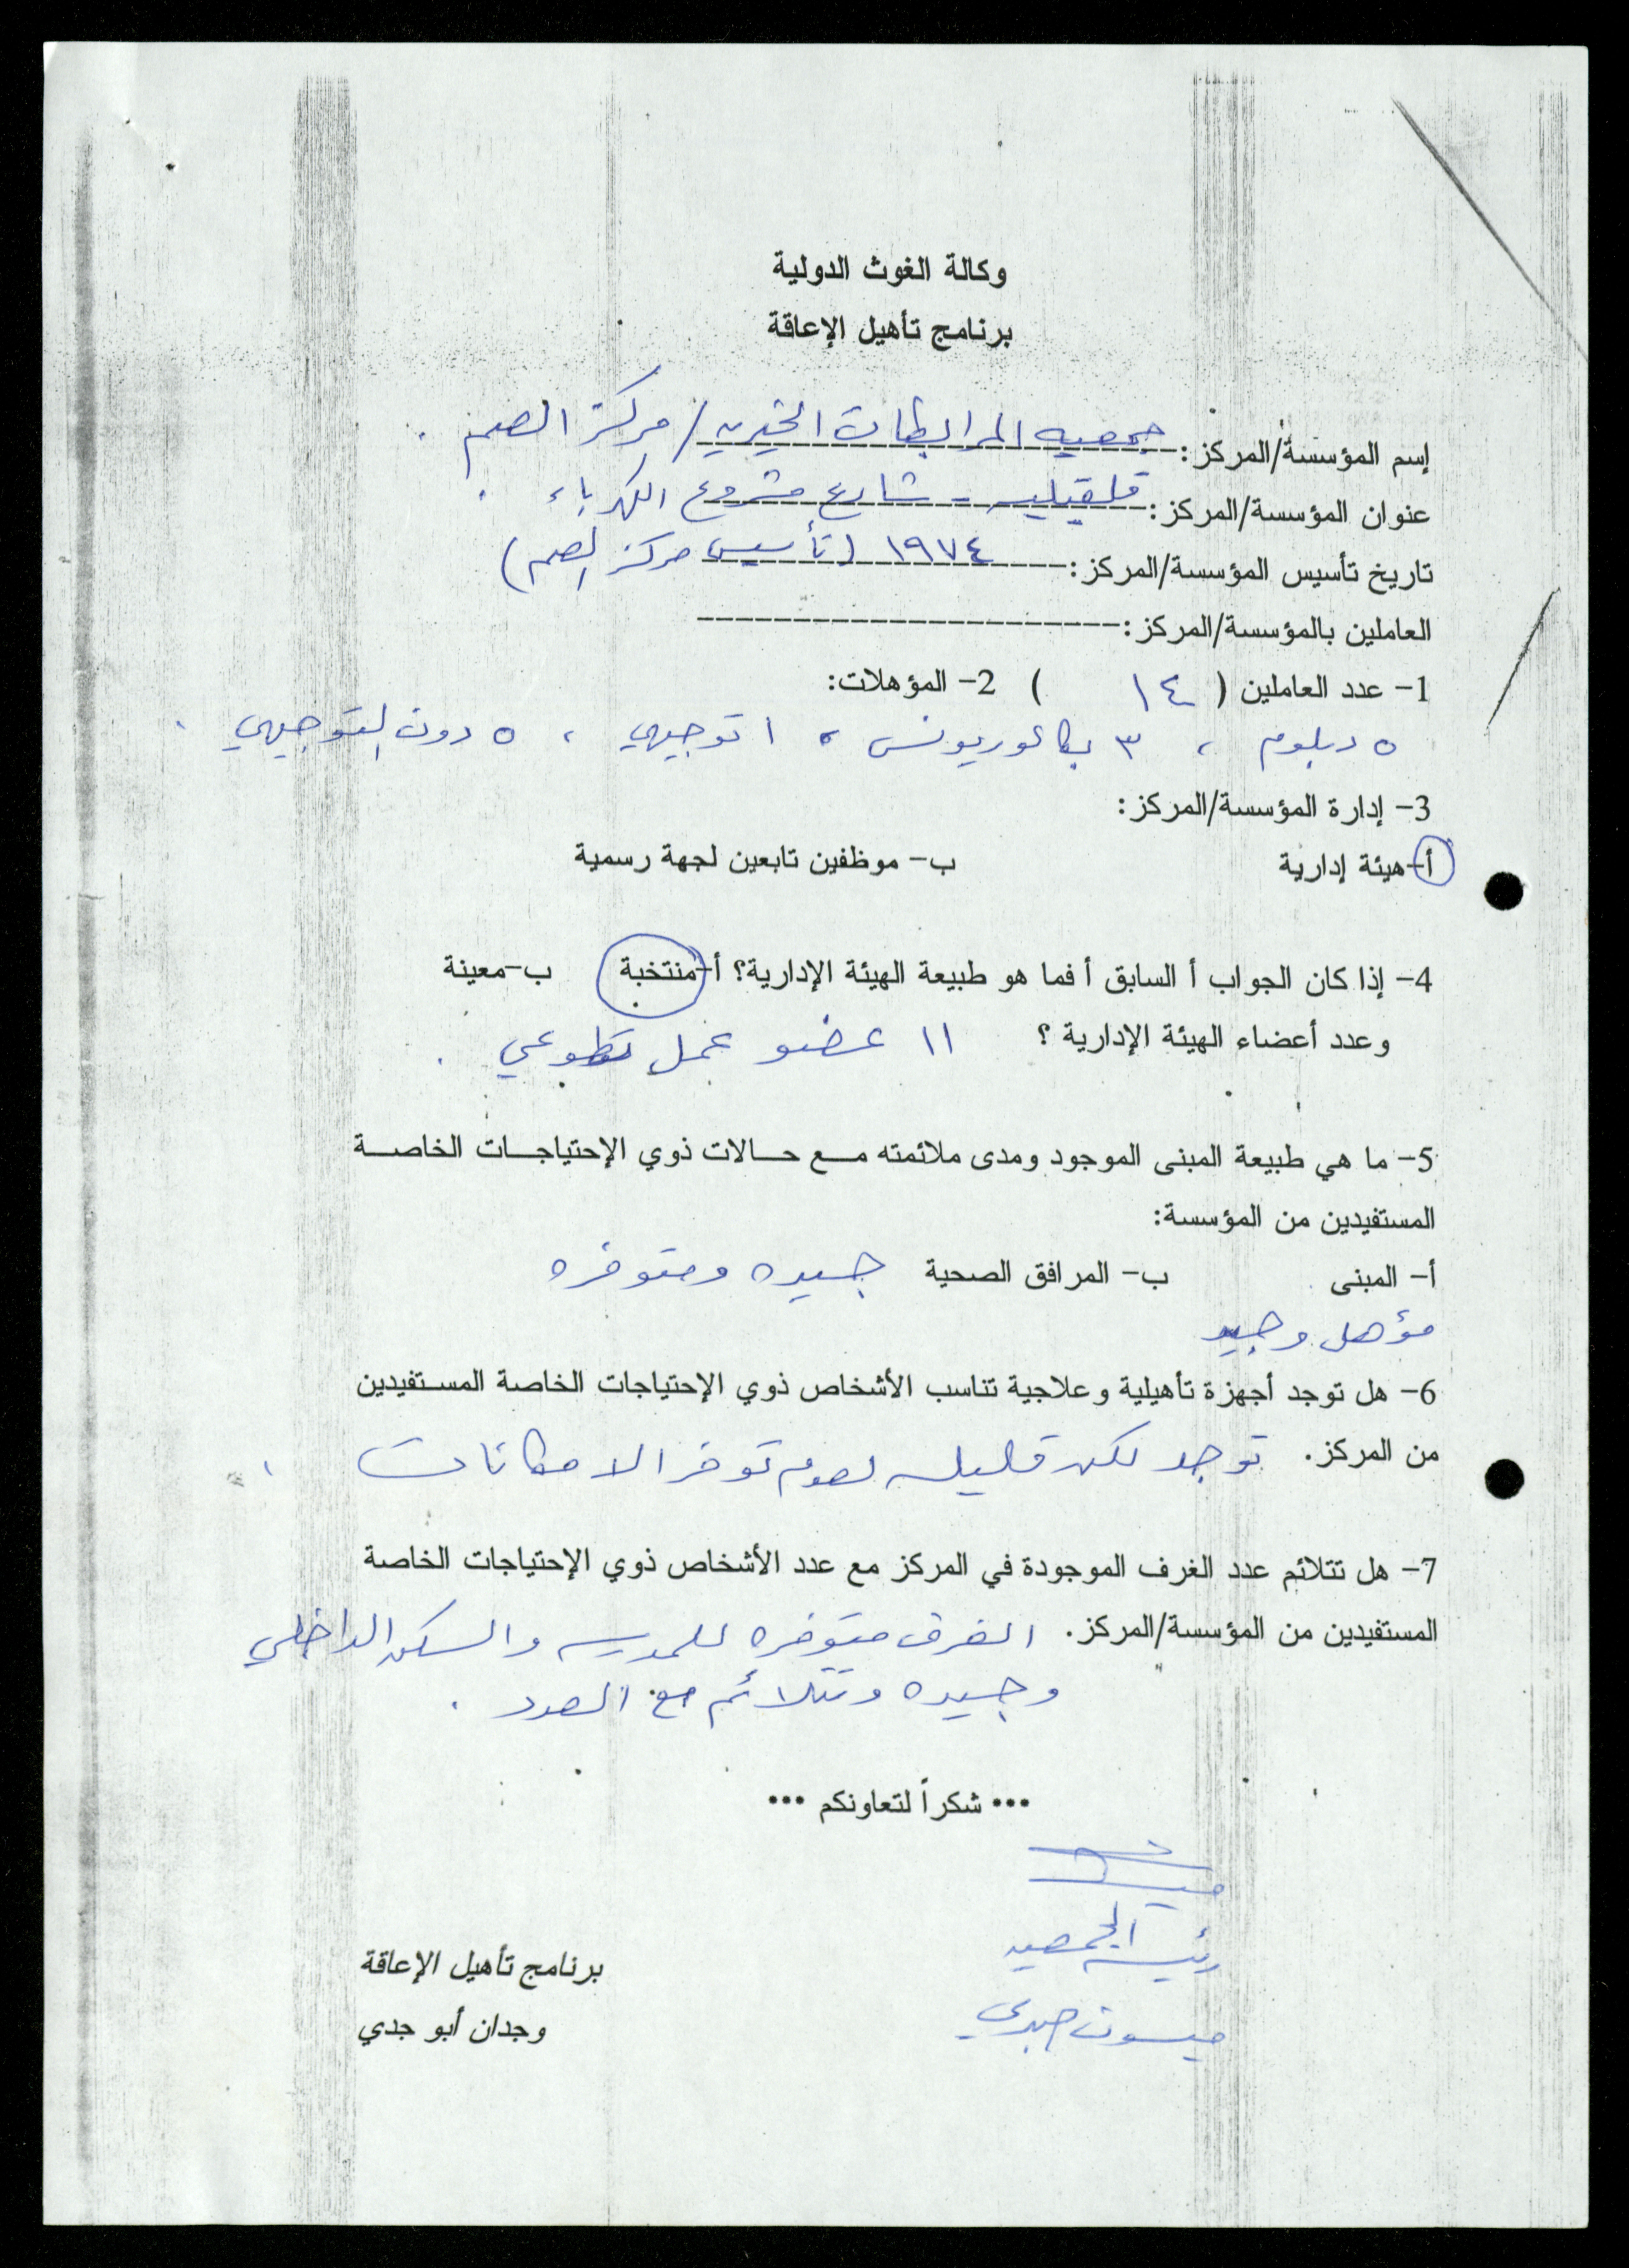 وكالة الغوث الدولية
برنامج تأهيل الإعاقة
إسم المؤسسة/المركز: جمعيه المرابطات الخيريه / مركز الصم .
عنوان المؤسسة/المركز: قلقيليه - شارع مشروع الكهرباء .
تاريخ تأسيس المؤسسة/المركز: ١٩٧٤ (تأسيس مركز الصم)
العاملين بالمؤسسة/المركز:
1- عدد العاملين ( ١٤ ) 2- المؤهلات:
٥ دبلوم ، ٣ بكالوريونس ، ١ توجيهي ، ٥ دون التوجيهي .
3- إدارة المؤسسة/المركز:
أ- هيئة إدارية ب- موظفين تابعين لجهة رسمية
4- إذا كان الجواب أ السابق أ فما هو طبيعة الهيئة الإدارية؟ أ-منتخبة ب-معينة
وعدد أعضاء الهيئة الإدارية ؟ ١١ عضو عمل تطوعي .
5- ما هي طبيعة المبنى الموجود ومدى ملائمته مع حالات ذوي الإحتياجات الخاصة
المستفيدين من المؤسسة:
أ- المبنى ب- المرافق الصحية جيده ومتوفره
مؤهل وجيد
6- هل توجد أجهزة تأهيلية وعلاجية تناسب الأشخاص ذوي الإحتياجات الخاصة المستفيدين
من المركز. توجد لكن قليله لعدم توفر الامكانات .
7- هل تتلائم عدد الغرف الموجودة في المركز مع عدد الأشخاص ذوي الإحتياجات الخاصة
المستفيدين من المؤسسة/المركز. الغرف متوفره للمدرسه والسكن الداخلي
وجيده وتتلائم مع العدد .
••• شكراً لتعاونكم •••
رئيسه الجمعيه
برنامج تأهيل الإعاقة
ميسون صبري
وجدان أبو جدي